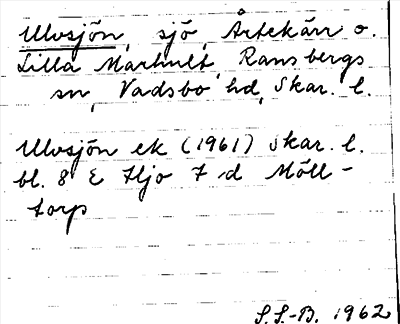 Ulvsjön, sjö, Årtekärr o.
Lilla Markult, Ransbergs
sn, Vadsbo hd, Skar. l.
Ulvsjön ek (1961) Skar. l.
bl. 8 E Hjo 7 d Möll-
torp
S.S.-B. 1962